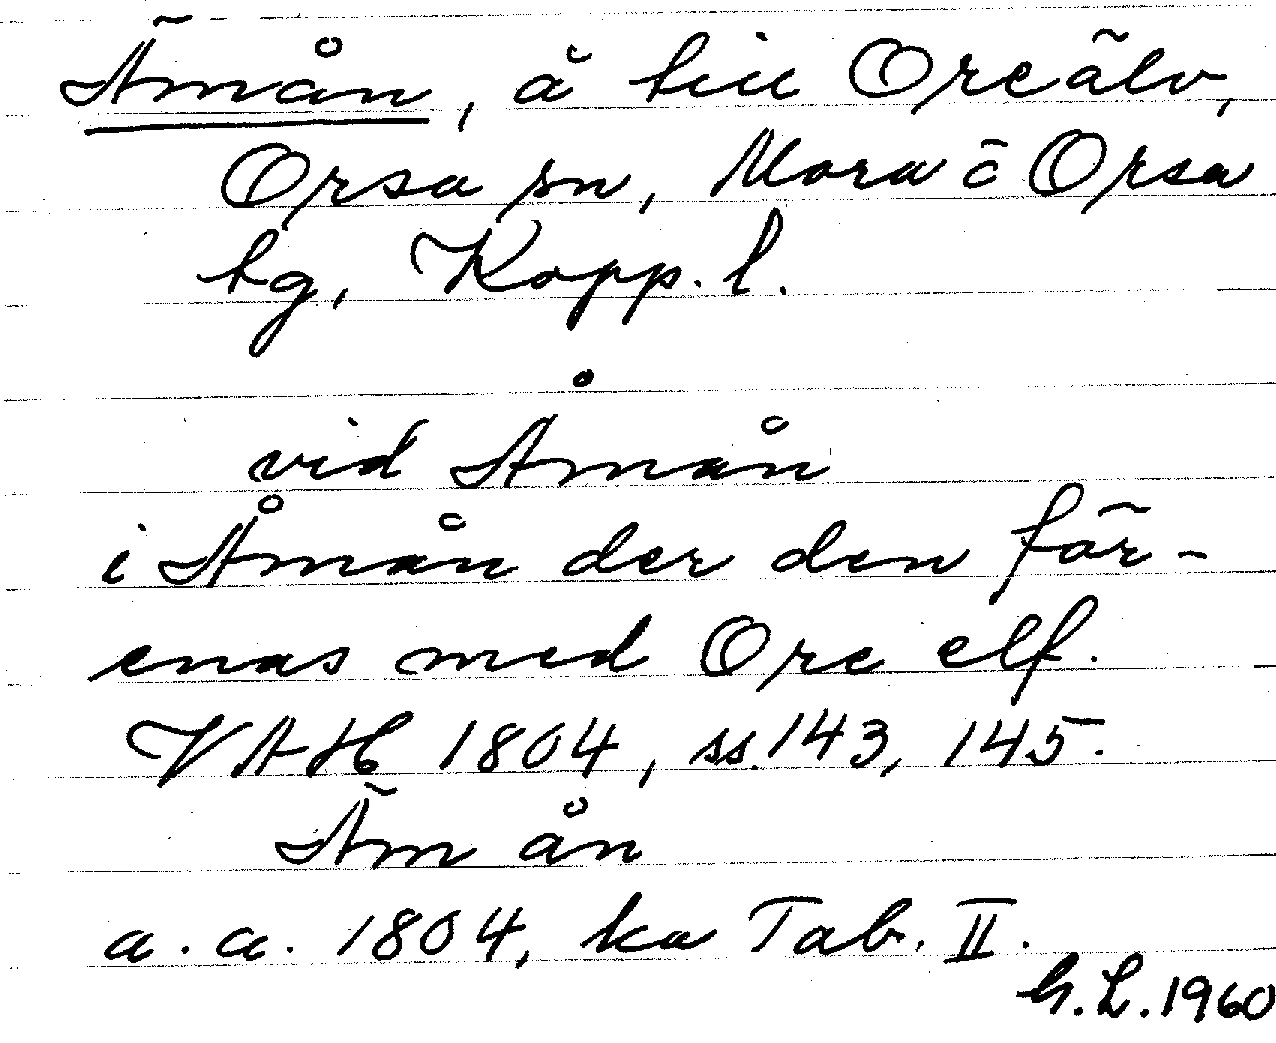 Ämån, å till Oreälv,
Orsa sn, Mora o Orsa
tg, Kopp. l.
vid Åmån
i Åmån der den för-
enas med Ore elf.
VAH 1804, ss. 143, 145.
Äm ån
a. a. 1804, ka Tab. II.
G. L. 1960